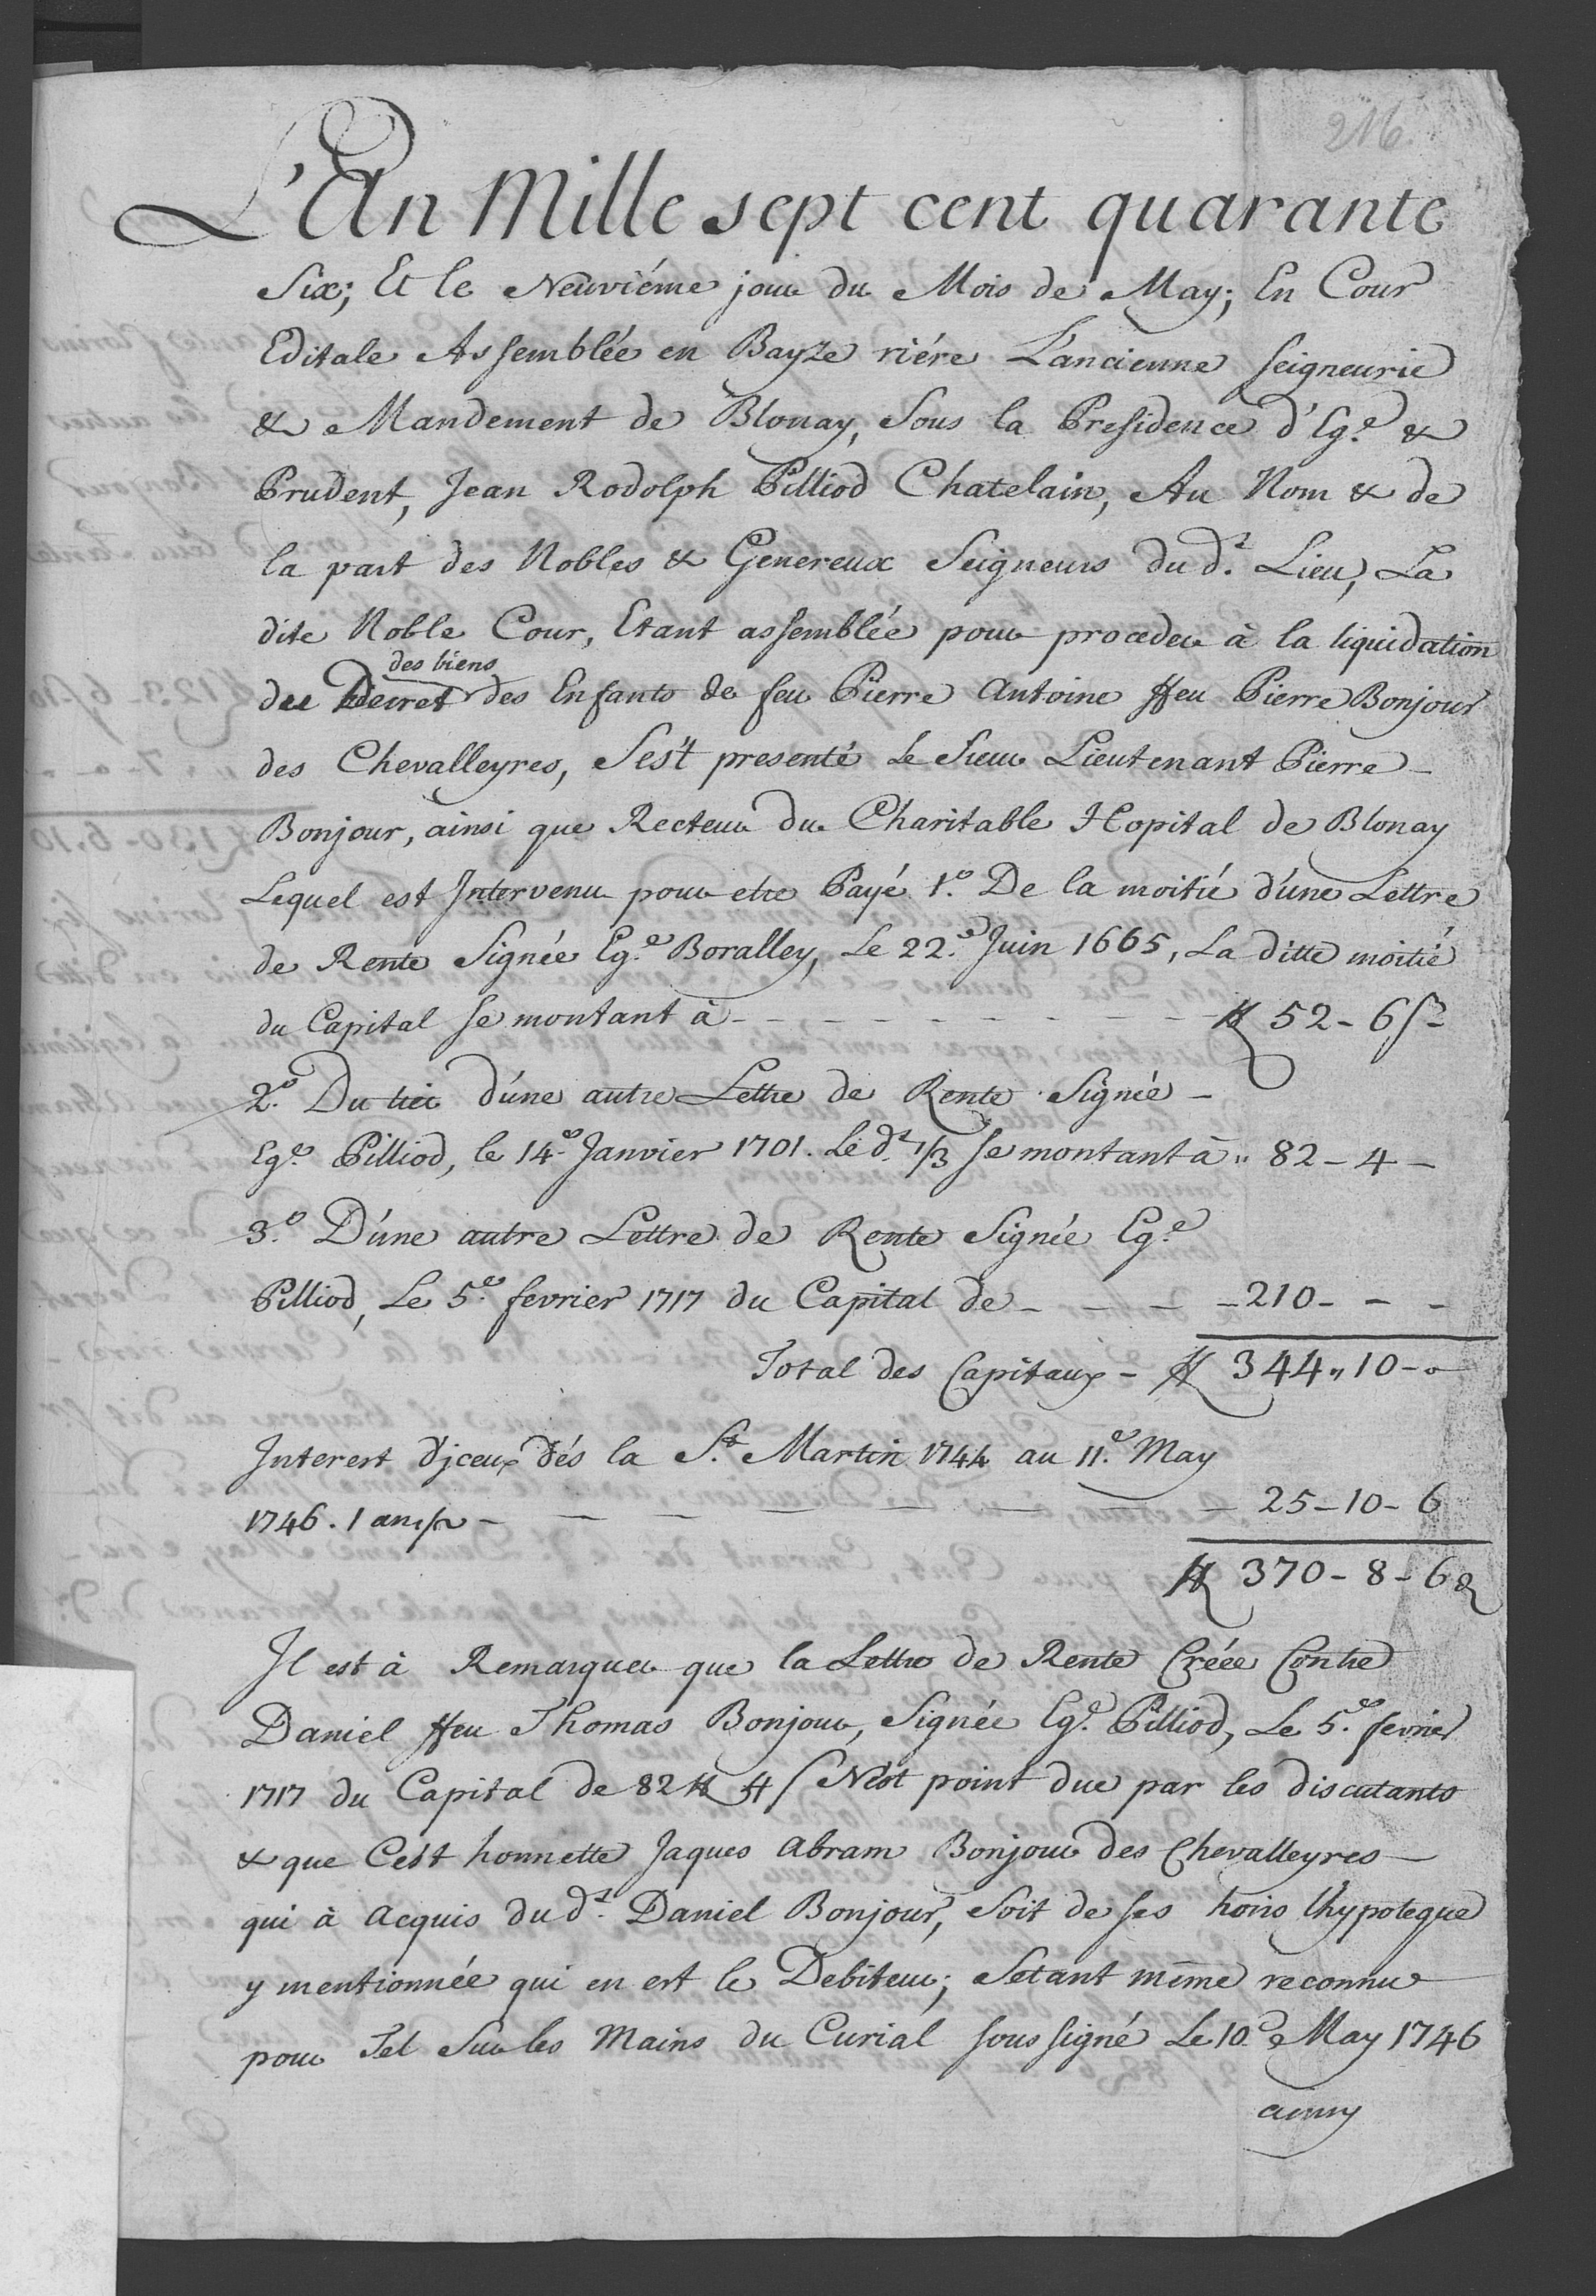 216.
L'An Mille sept cent quarante
Six; Et le Neuviéme jour du Mois de May; En Cour
Editale Assemblée en Bayze riére L'ancienne Seigneurie
& Mandement de Blonay, Sous la Presidence d'Eg.e &
Prudent, Jean Rodolph Pilliod Chatelain, Au Nom & de
la part des Nobles & Genereux Seigneurs du d.t Lieu, La
dite Noble Cour, Etant assemblée pour proceder à la liquidation
des biens
du Decret des Enfants de feu Pierre Antoine ffeu Pierre Bonjour
des Chevalleyres, S'est presenté Le Sieur Lieutenant Pierre
Bonjour, ainsi que Recteur du Charitable Hopital de Blonay
Lequel est Intervenu pour etre Payé 1.o De la moitié d'une Lettre
de Rente Signée Eg.e Boralley, Le 22.e Juin 1665, La ditte moitié
du Capital se montant à - - - - - - - - - ₶ 52 - 6 s
2.o Du tier d'une autre Lettre de Rente Signée -
Eg.e Pilliod, le 14.e Janvier 1701. Le d.t 1/3 se montant à " 82 - 4 -
3.o D'une autre Lettre de Rente Signée Eg.e
Pilliod, Le 5.e fevrier 1717 du Capital de - - - - 210 - - -
Total des Capitaux - ₶ 344 " 10 - "
Interest d'jceux dés la S.t Martin 1744 au 11.e May
1746. 1 an 1/2 - - - - - - - 25 - 10 - 6
₶ 370 - 8 - 6 d
Il est à Remarquer que la Lettre de Rente Créée Contre
Daniel ffeu Thomas Bonjour, Signée Eg.e Pilliod, Le 5.e fevrier
1717 du Capital de 82 ₶ 4 s N'est point due par les discutants
& que C'est honnette Jaques Abram Bonjour des Chevalleyres
qui à acquis du d.t Daniel Bonjour, Soit de ses hoirs l'hypoteque
y mentionnée qui en est le Debiteur; S'etant méme reconnu
pour Tel Sur les Mains du Curial soussigné Le 10.e May 1746